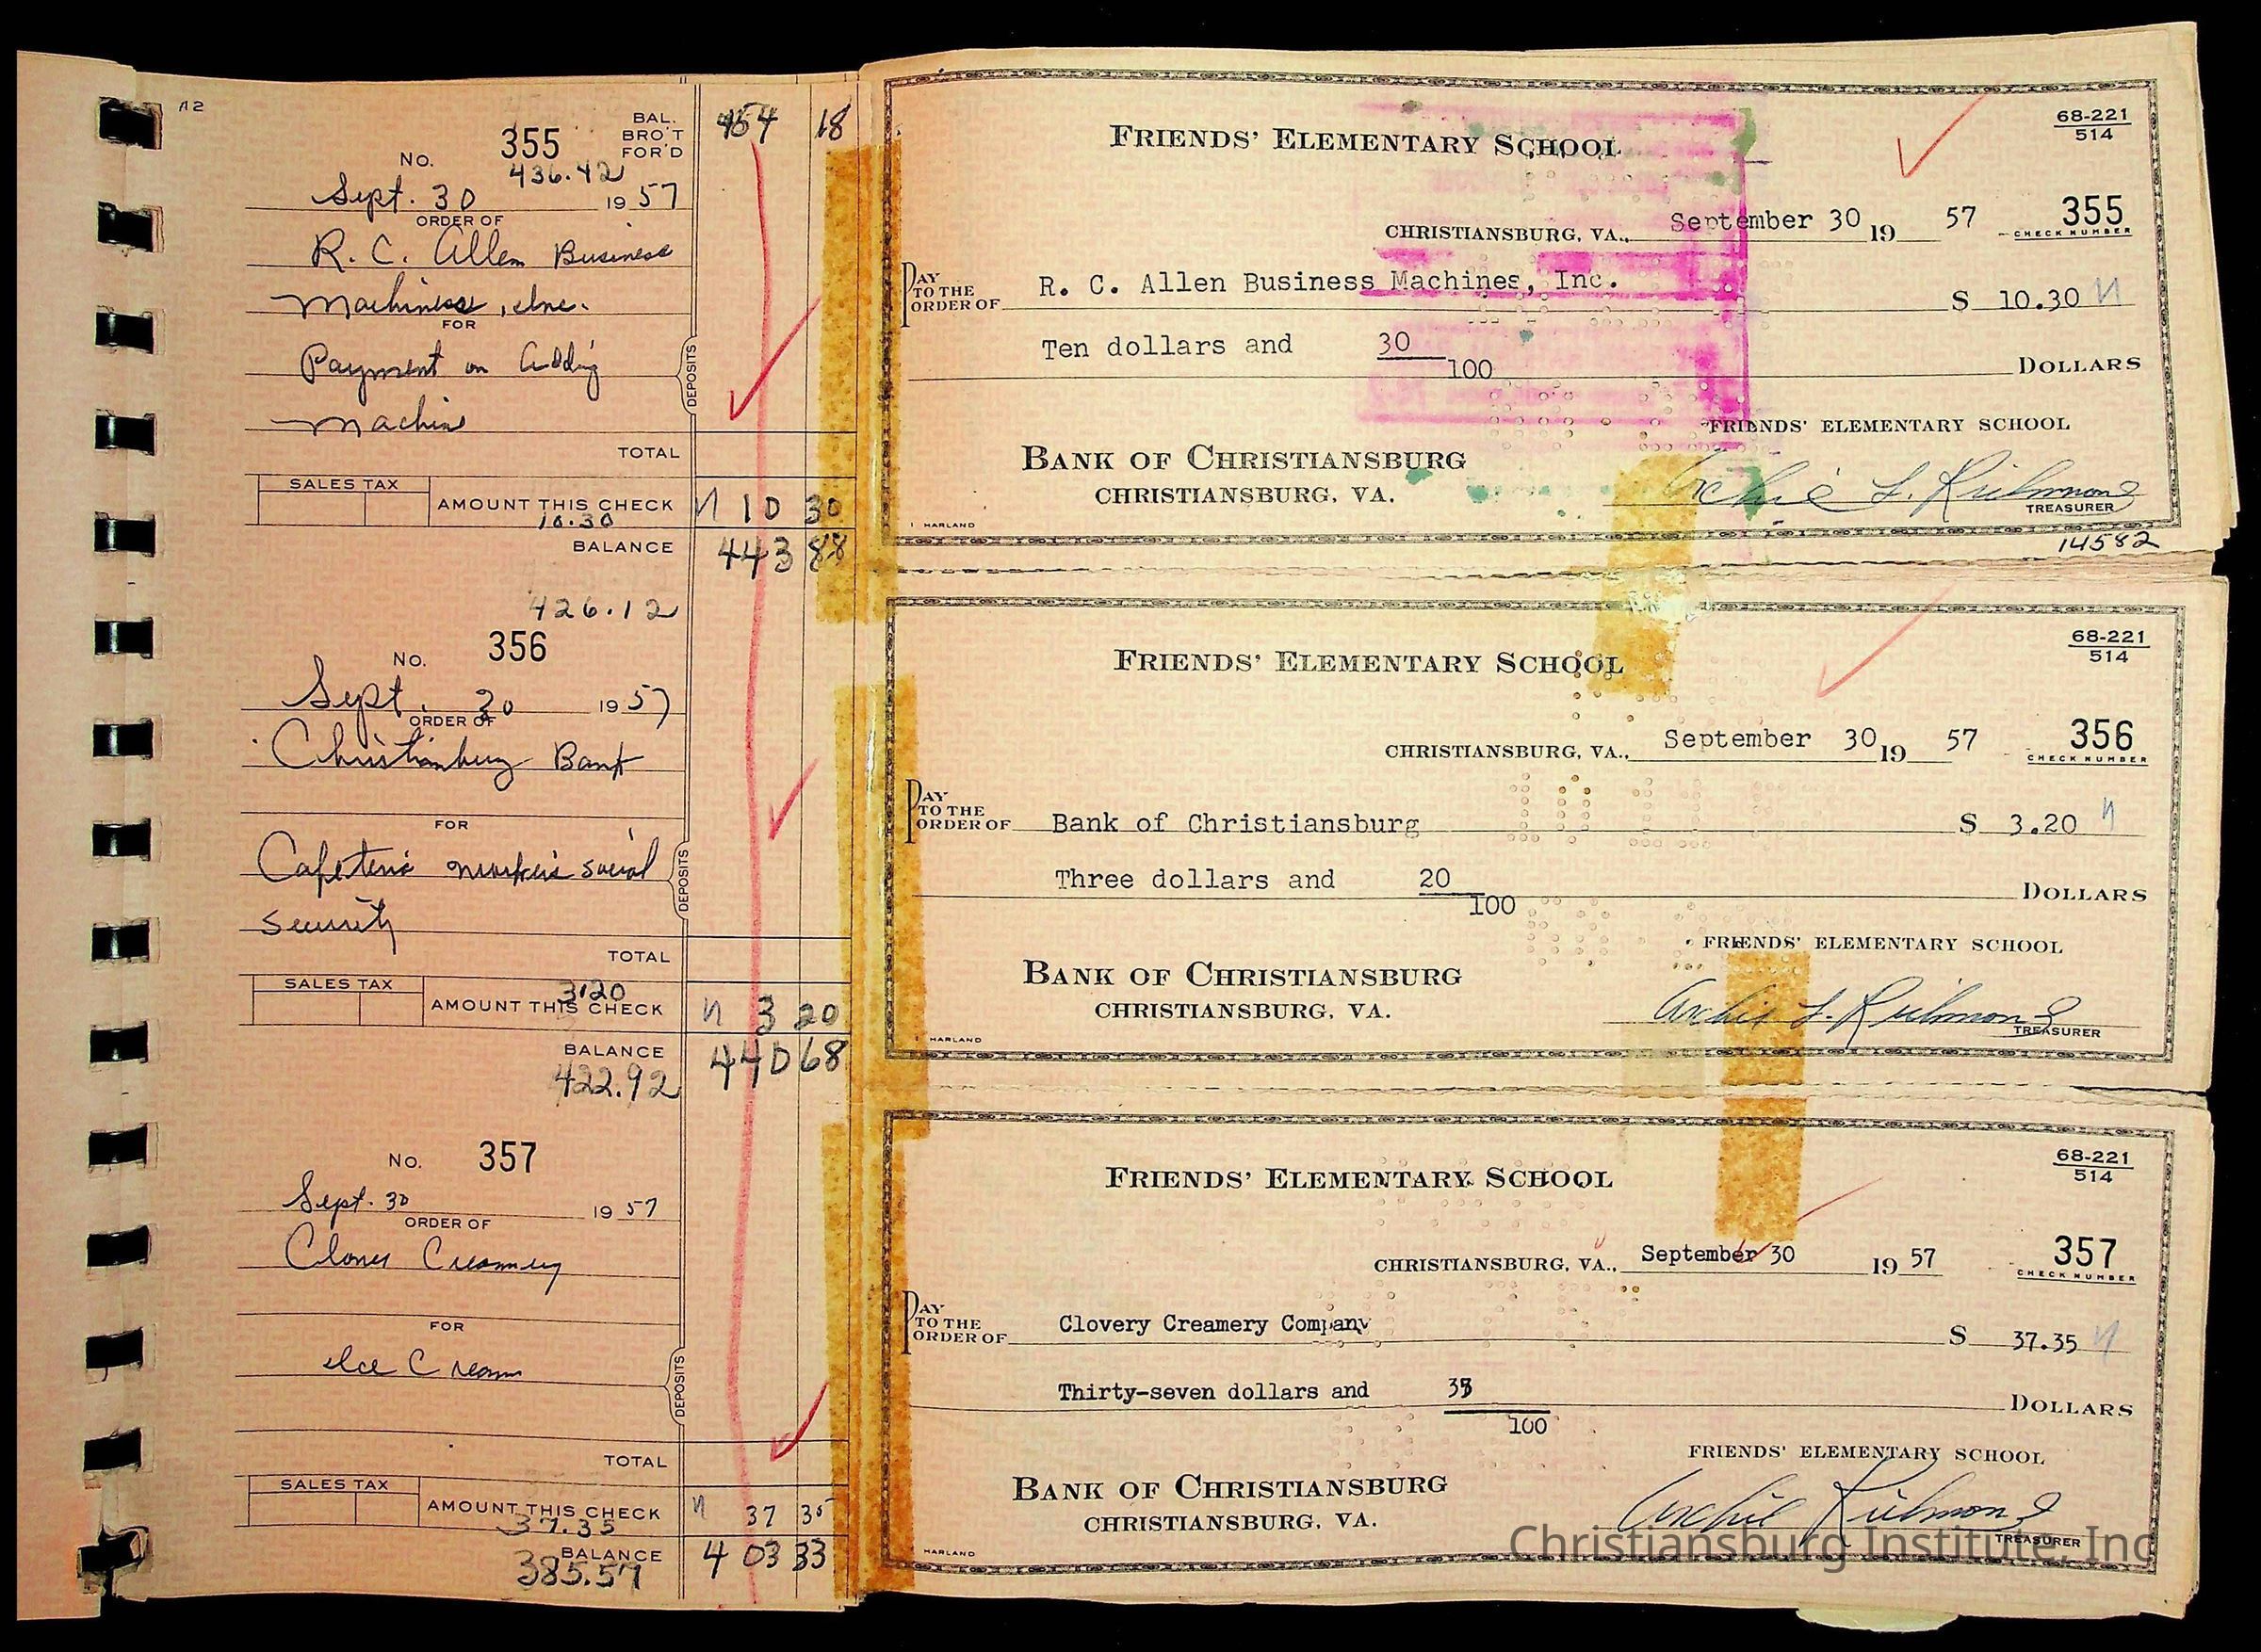 A2
BAL.
BRO'T
FOR'D
No. 355
454 18
436.42
Sept. 30 1957
ORDER OF
R. C. Allen Business
Machines, Inc.
FOR
Payment on Adding
Machine
DEPOSITS
TOTAL
SALES TAX
AMOUNT THIS CHECK 10 30
10.30
BALANCE 443 88
426.12
No. 356
Sept. 30 1957
ORDER OF
Christiansburg Bank
FOR
Cafeteria worker's social
security
DEPOSITS
TOTAL
SALES TAX
3.20
AMOUNT THIS CHECK 3 20
BALANCE 440 68
422.92
No. 357
Sept. 30 1957
ORDER OF
Clover Creamery
FOR
Ice Cream
DEPOSITS
TOTAL
SALES TAX
AMOUNT THIS CHECK 37 35
37.35
BALANCE 403 33
385.57
FRIENDS' ELEMENTARY SCHOOL
68-221
514
CHRISTIANSBURG, VA., September 30 19 57
355
CHECK NUMBER
PAY TO THE ORDER OF R. C. Allen Business Machines, Inc. $ 10.30
Ten dollars and 30/100 DOLLARS
FRIENDS' ELEMENTARY SCHOOL
BANK OF CHRISTIANSBURG
CHRISTIANSBURG, VA.
Archie L. Richmond
TREASURER
HARLAND
14582
FRIENDS' ELEMENTARY SCHOOL
68-221
514
CHRISTIANSBURG, VA., September 30 19 57
356
CHECK NUMBER
PAY TO THE ORDER OF Bank of Christiansburg $ 3.20
Three dollars and 20/100 DOLLARS
FRIENDS' ELEMENTARY SCHOOL
BANK OF CHRISTIANSBURG
CHRISTIANSBURG, VA.
Archie L. Richmond
TREASURER
HARLAND
FRIENDS' ELEMENTARY SCHOOL
68-221
514
CHRISTIANSBURG, VA., September 30 19 57
357
CHECK NUMBER
PAY TO THE ORDER OF Clovery Creamery Company $ 37.35
Thirty-seven dollars and 35/100 DOLLARS
FRIENDS' ELEMENTARY SCHOOL
BANK OF CHRISTIANSBURG
CHRISTIANSBURG, VA.
Archie Richmond
TREASURER
HARLAND
Christiansburg Institute, Inc